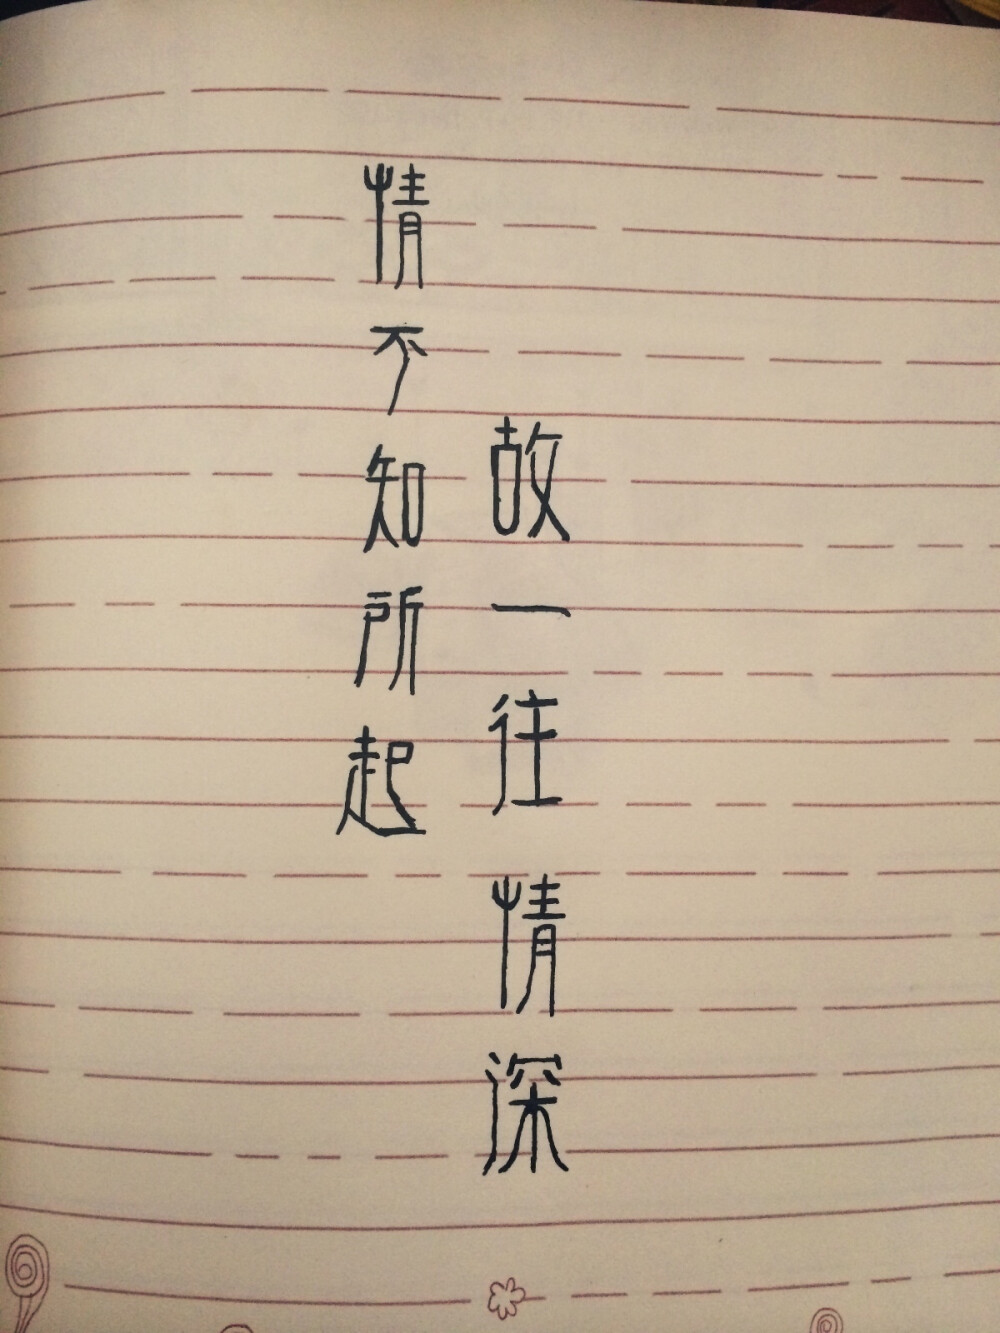 情不知所起
故一往情深